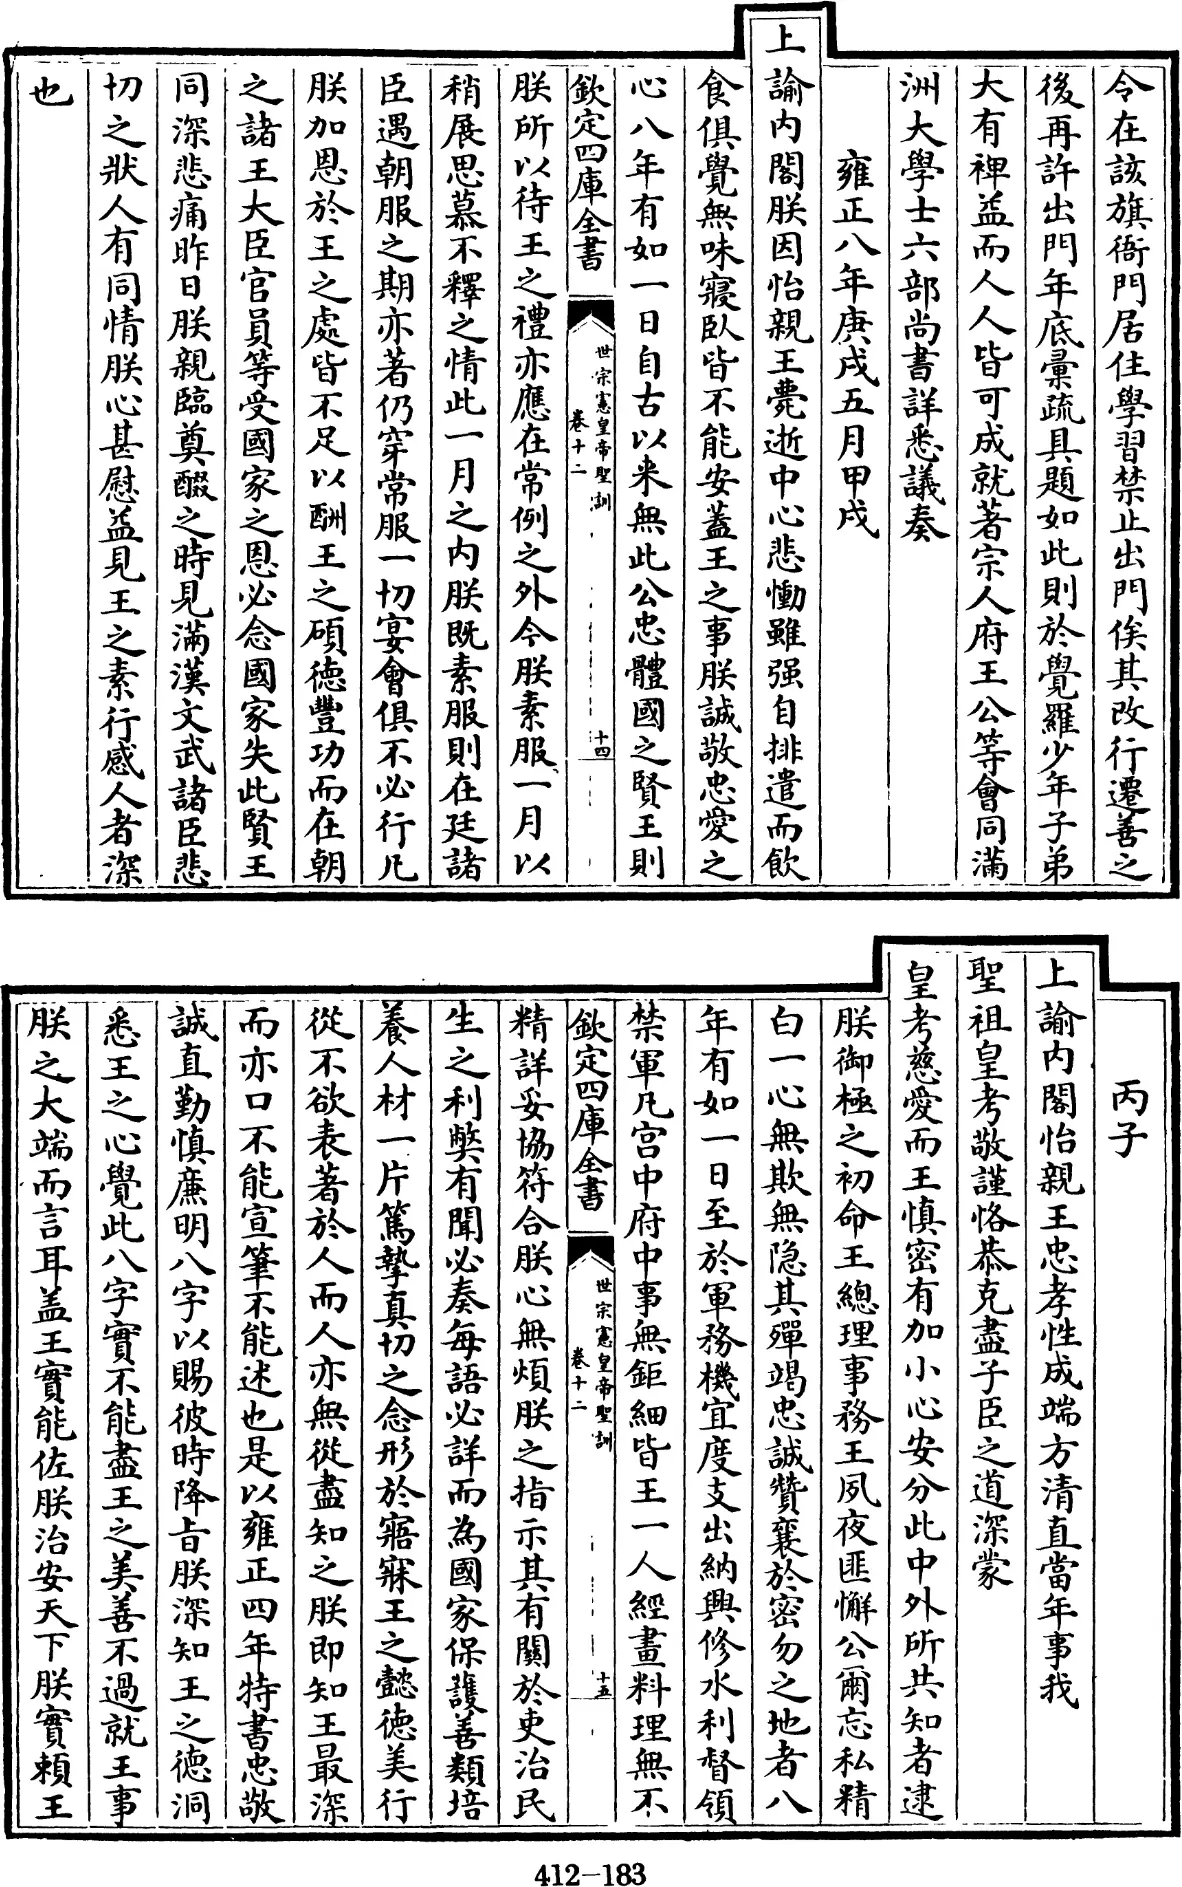 令在該旗衙門居住學習禁止出門俟其改行遷善之
後再許出門年底彚疏具題如此則於覺羅少年子弟
大有裨益而人人皆可成就著宗人府王公等會同滿
洲大學士六部尚書詳悉議奏
雍正八年庚戌五月甲戌
上諭内閣朕因怡親王薨逝中心悲慟雖强自排遣而飲
食俱覺無味寢臥皆不能安蓋王之事朕誠敬忠愛之
心八年有如一日自古以来無此公忠體國之賢王則
欽定四庫全書
世宗憲皇帝聖訓
卷十二
十四
朕所以待王之禮亦應在常例之外今朕素服一月以
稍展思慕不釋之情此一月之内朕既素服則在廷諸
臣遇朝服之期亦著仍穿常服一切宴會俱不必行凡
朕加恩於王之處皆不足以酬王之碩德豐功而在朝
之諸王大臣官員等受國家之恩必念國家失此賢王
同深悲痛昨日朕親臨奠醊之時見滿漢文武諸臣悲
切之狀人有同情朕心甚慰益見王之素行感人者深
也
丙子
上諭内閣怡親王忠孝性成端方清直當年事我
聖祖皇考敬謹恪恭克盡子臣之道深蒙
皇考慈愛而王慎密有加小心安分此中外所共知者逮
朕御極之初命王總理事務王夙夜匪懈公爾忘私精
白一心無欺無隱其殫竭忠誠贊襄於密勿之地者八
年有如一日至於軍務機宜度支出納興修水利督領
禁軍凡宫中府中事無鉅細皆王一人經畫料理無不
欽定四庫全書
世宗憲皇帝聖訓
卷十二
十五
精詳妥協符合朕心無煩朕之指示其有關於吏治民
生之利獘有聞必奏每語必詳而為國家保護善類培
養人材一片篤摯真切之念形於寤寐王之懿德美行
從不欲表著於人而人亦無從盡知之朕即知王最深
而亦口不能宣筆不能述也是以雍正四年特書忠敬
誠直勤慎廉明八字以賜彼時降旨朕深知王之德洞
悉王之心覺此八字實不能盡王之美善不過就王事
朕之大端而言耳盖王實能佐朕治安天下朕實賴王
412-183